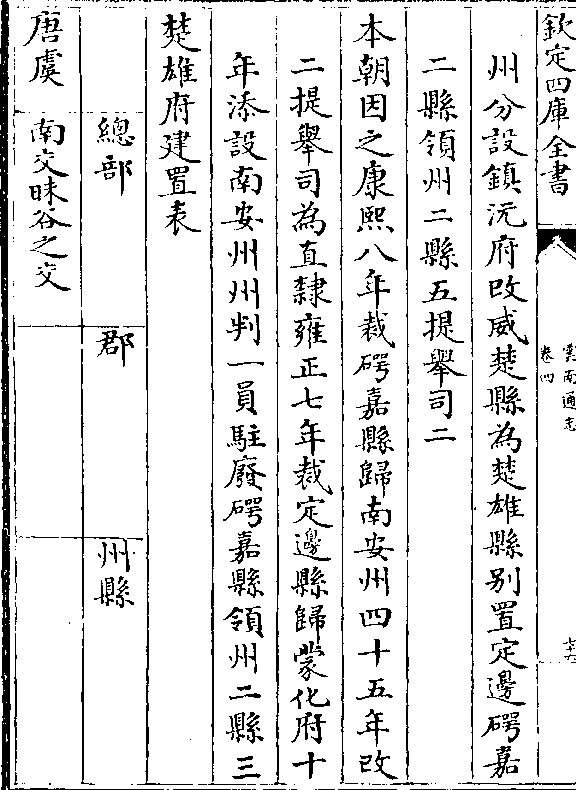 欽定四庫全書
雲南通志
卷四
州分設鎮沅府改威楚縣為楚雄縣别置定邊碍嘉
二縣領州二縣五提舉司二
本朝因之康熙八年裁碍嘉縣歸南安州四十五年改
二提舉司為直隸雍正七年裁定邊縣歸蒙化府十
年添設南安州州判一員駐廢碍嘉縣領州二縣三
楚雄府建置表
總部
郡
州縣
唐虞
南交昧谷之交